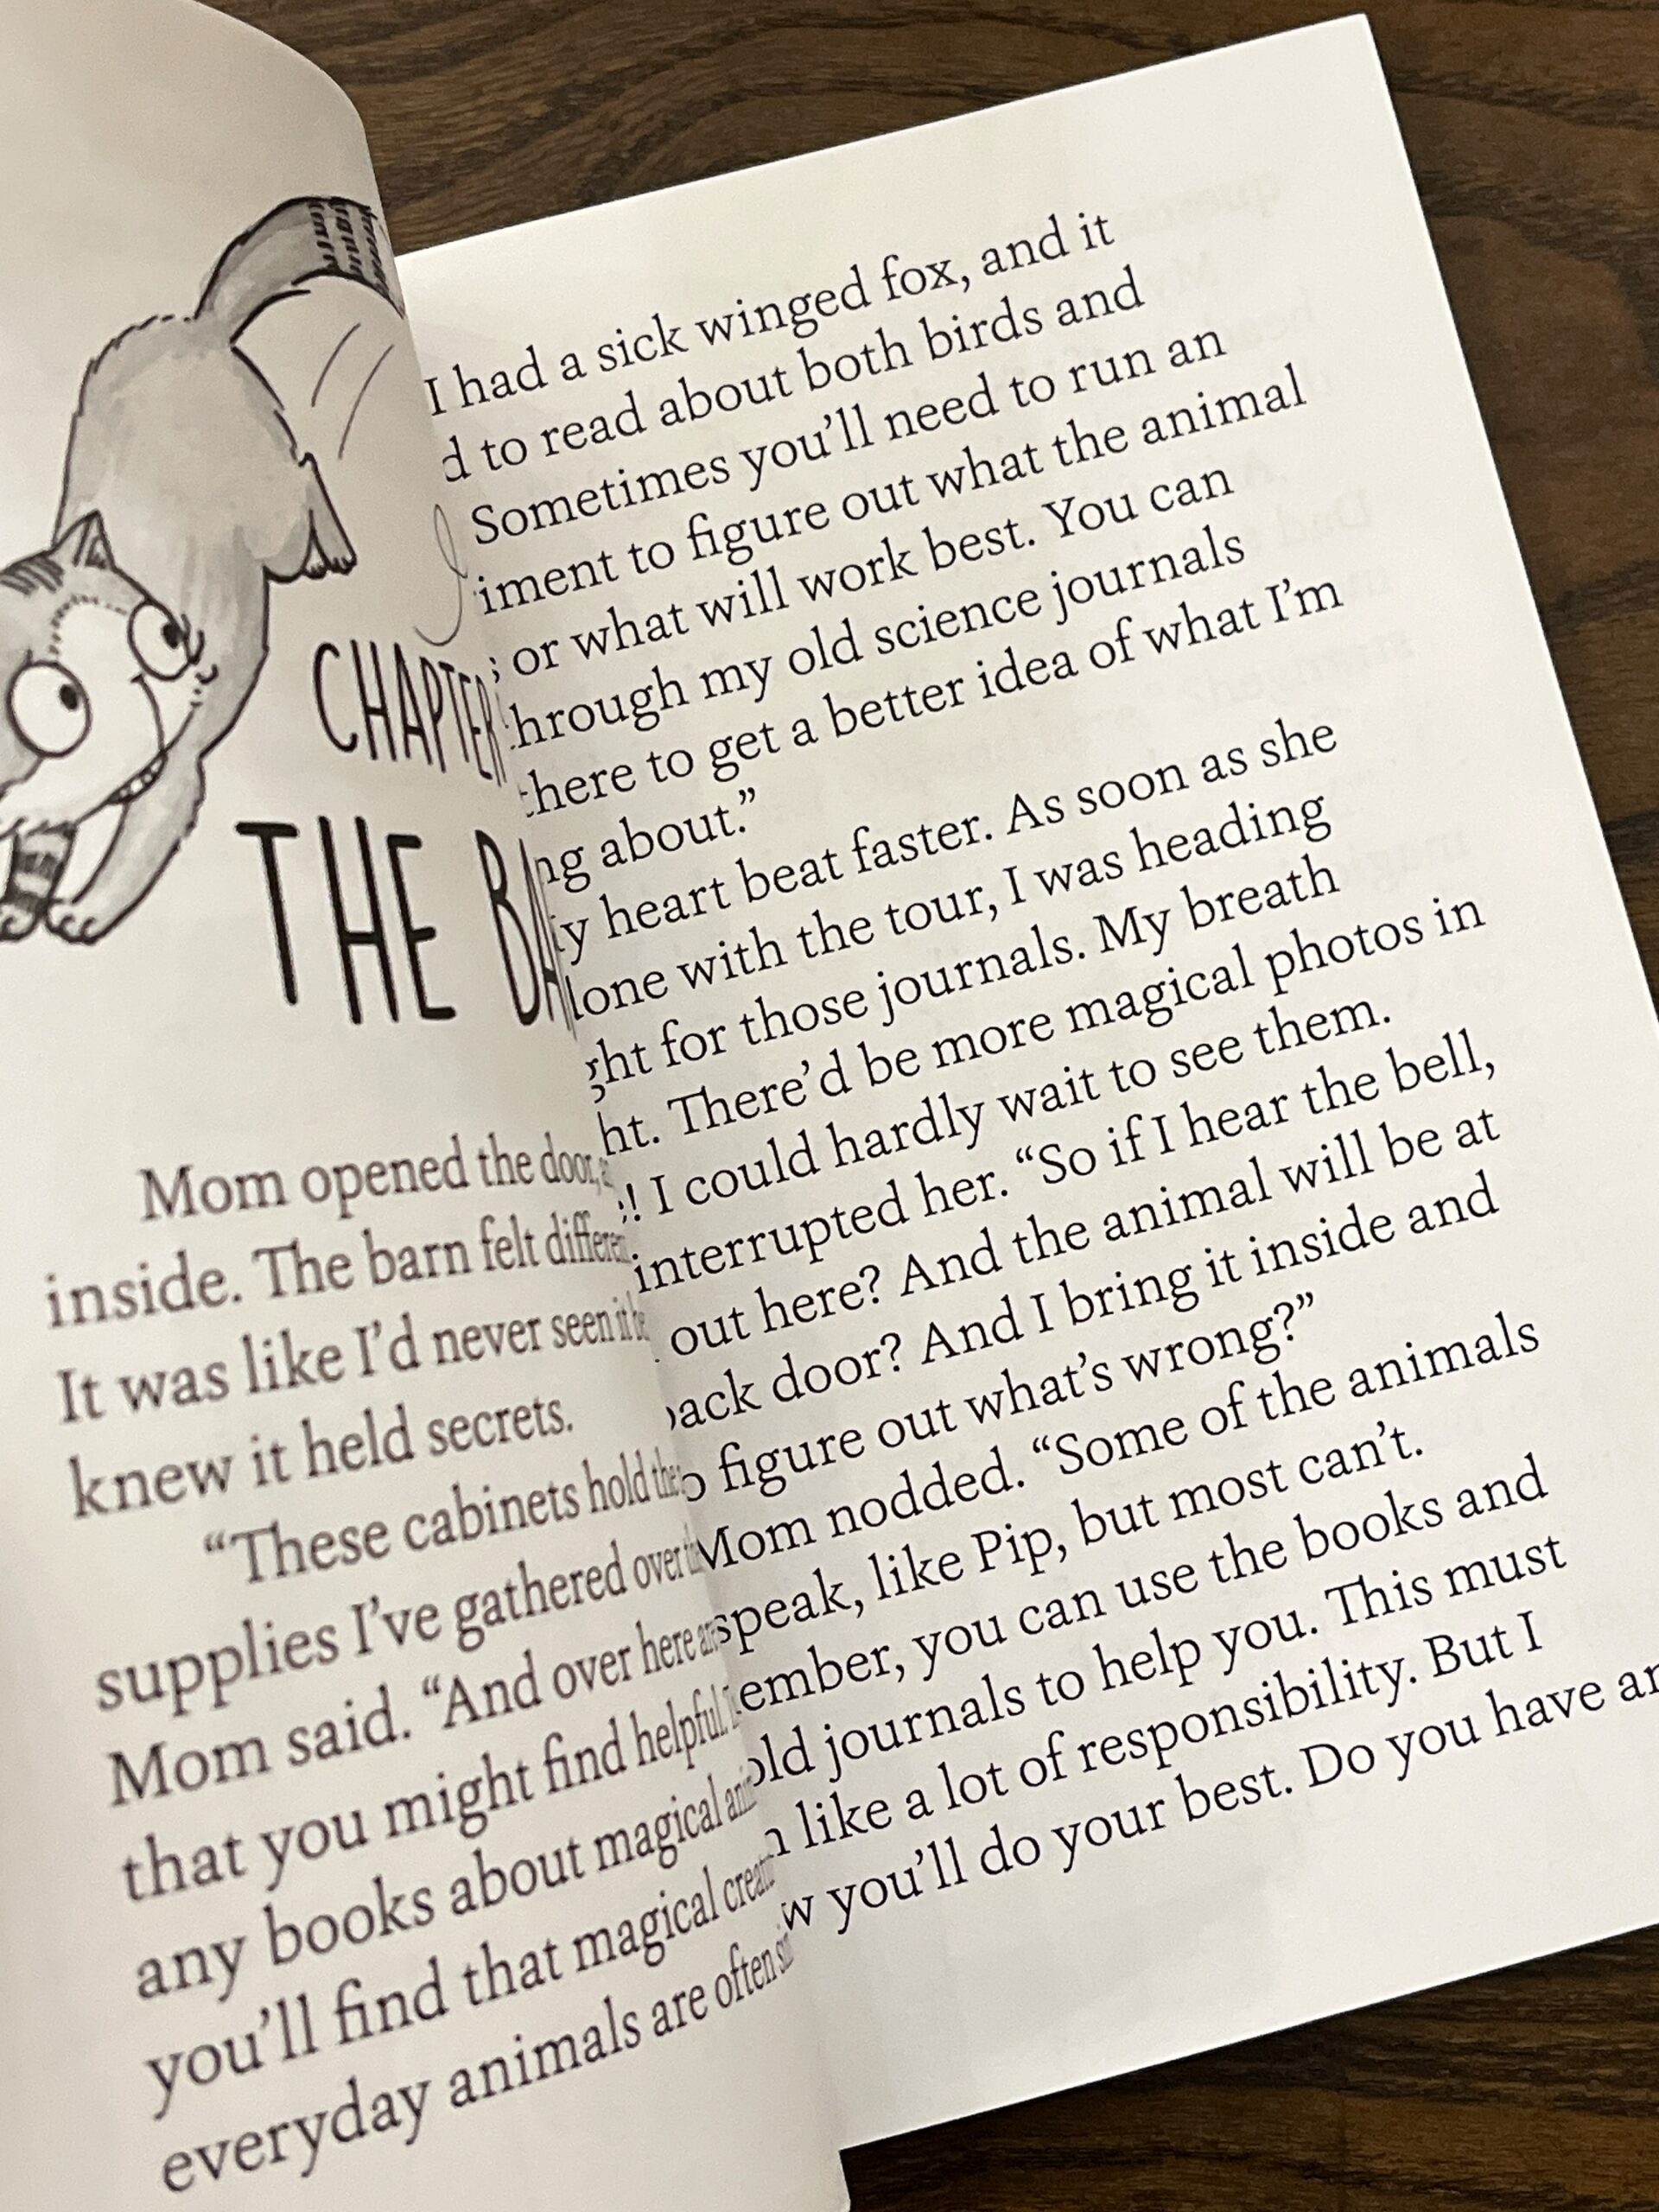 CHAPTER
THE
Mom opened the door,
inside. The barn felt
It was like I'd never seen it
knew it held secrets.
“These cabinets hold
supplies I've gathered over
Mom said. “And over here
that you might find helpful.
any books about magical
you'll find that magical
everyday animals are often
I had a sick winged fox, and it
to read about both birds and
Sometimes you'll need to run an
to figure out what the animal
or what will work best. You can
my old science journals
to get a better idea of what I'm
about.”
heart beat faster. As soon as she
with the tour, I was heading
for those journals. My breath
There'd be more magical photos in
I could hardly wait to see them.
interrupted her. “So if I hear the bell,
out here? And the animal will be at
door? And I bring it inside and
figure out what's wrong?”
Mom nodded. “Some of the animals
speak, like Pip, but most can't.
you can use the books and
old journals to help you. This must
like a lot of responsibility. But I
you'll do your best. Do you have